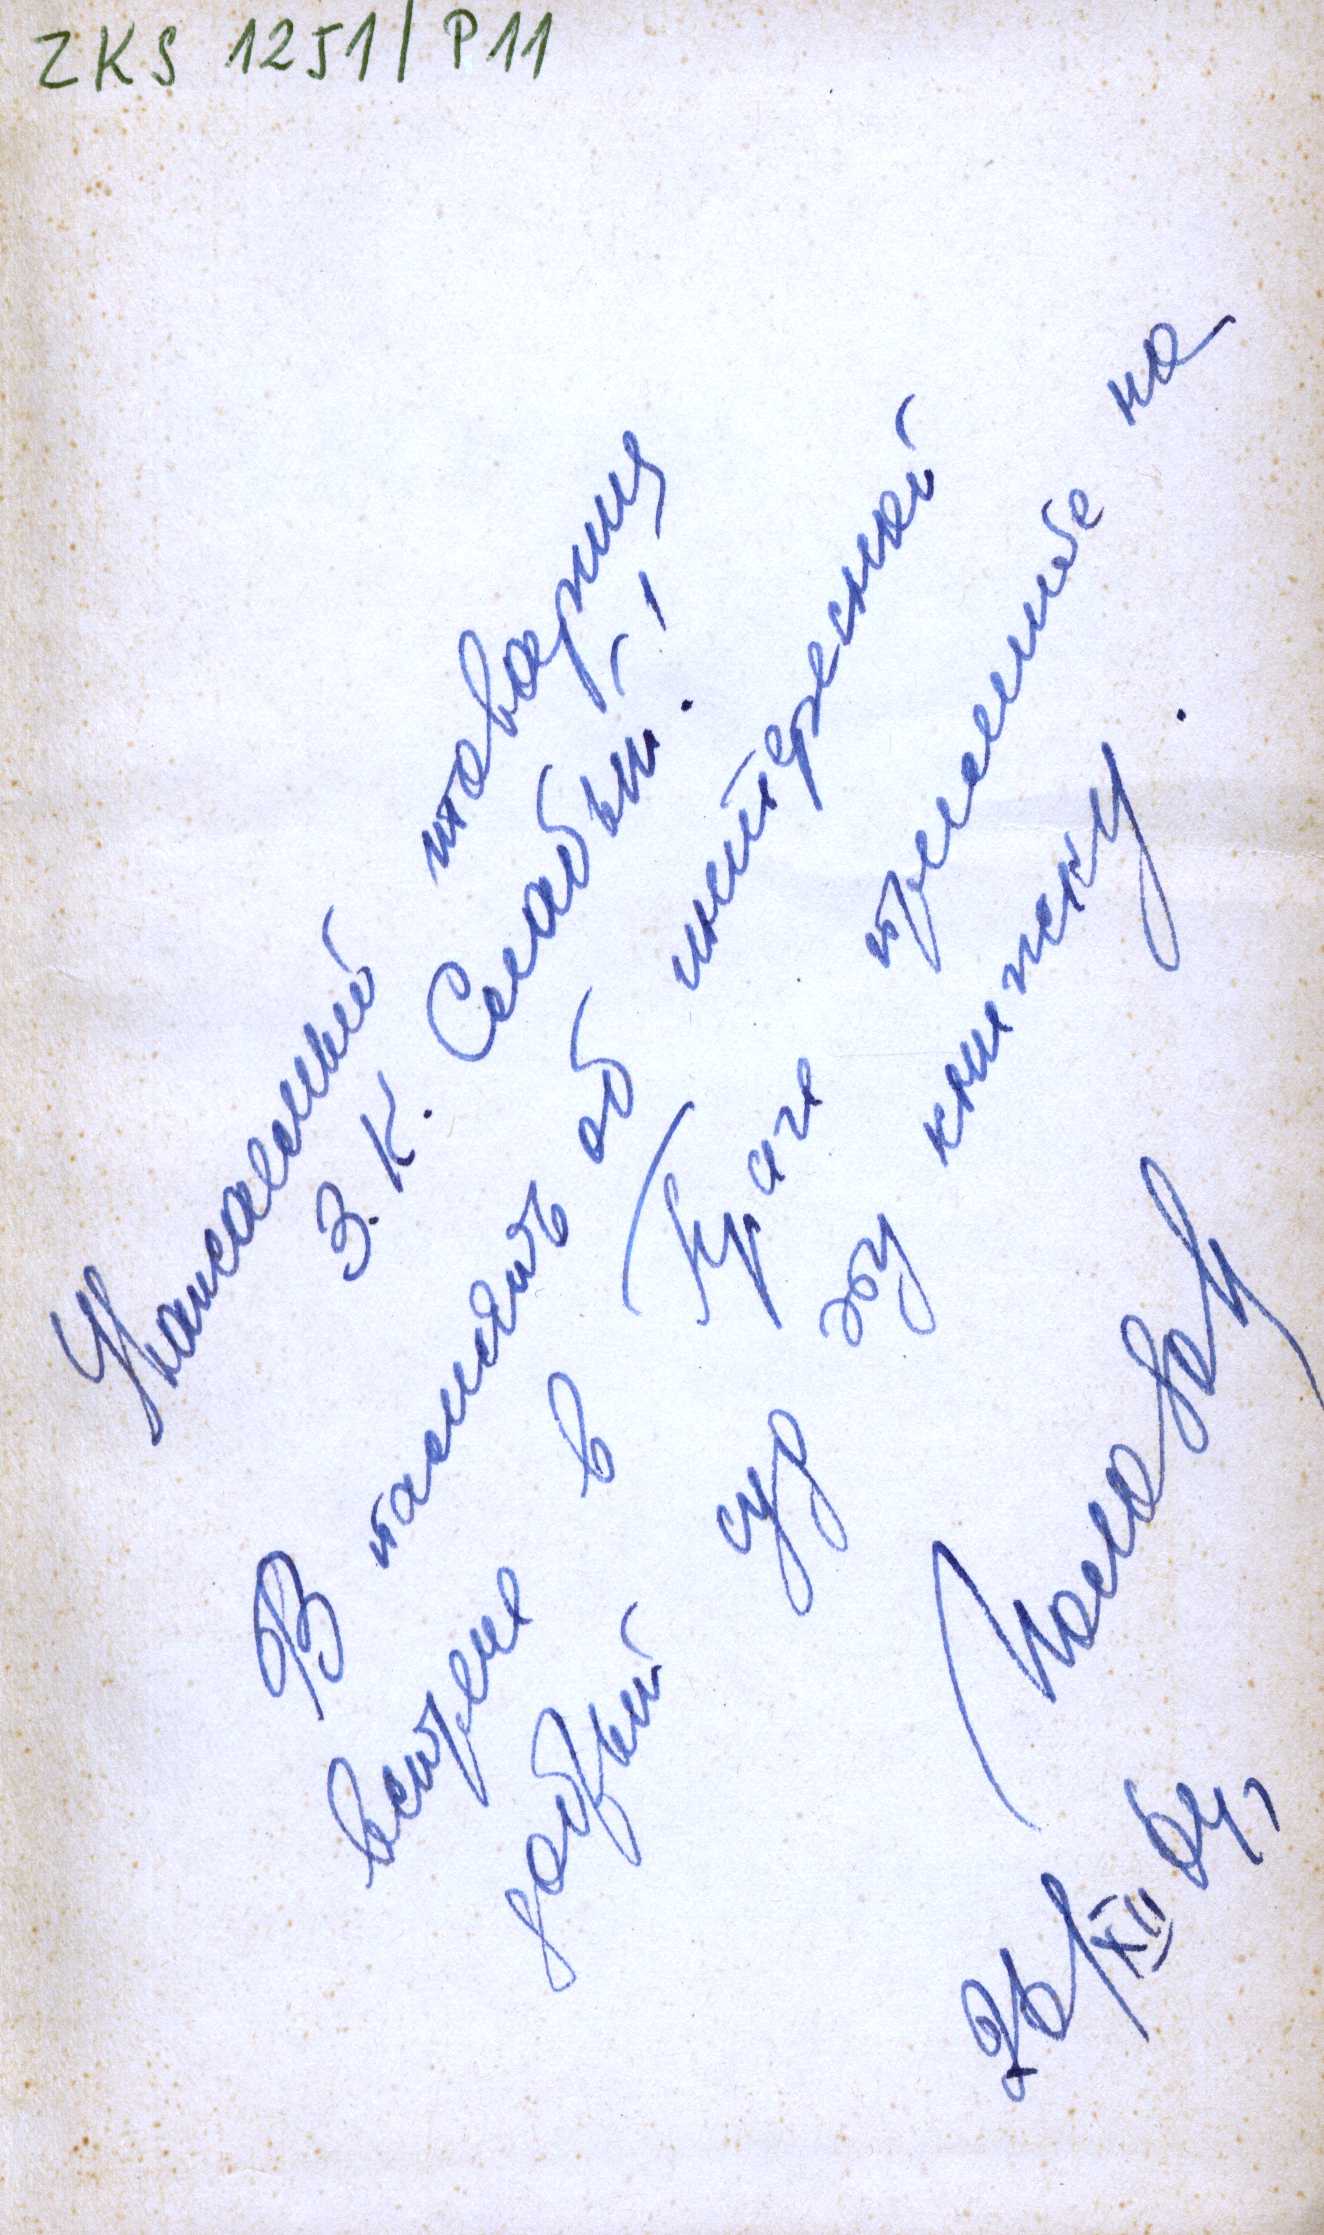 ZKS 1251/P11
Уважаемый товарищ
З. К. Слабый!
В память об интересной
встрече в Праге примите на
добрый суд эту книжку.
26/XII 64,